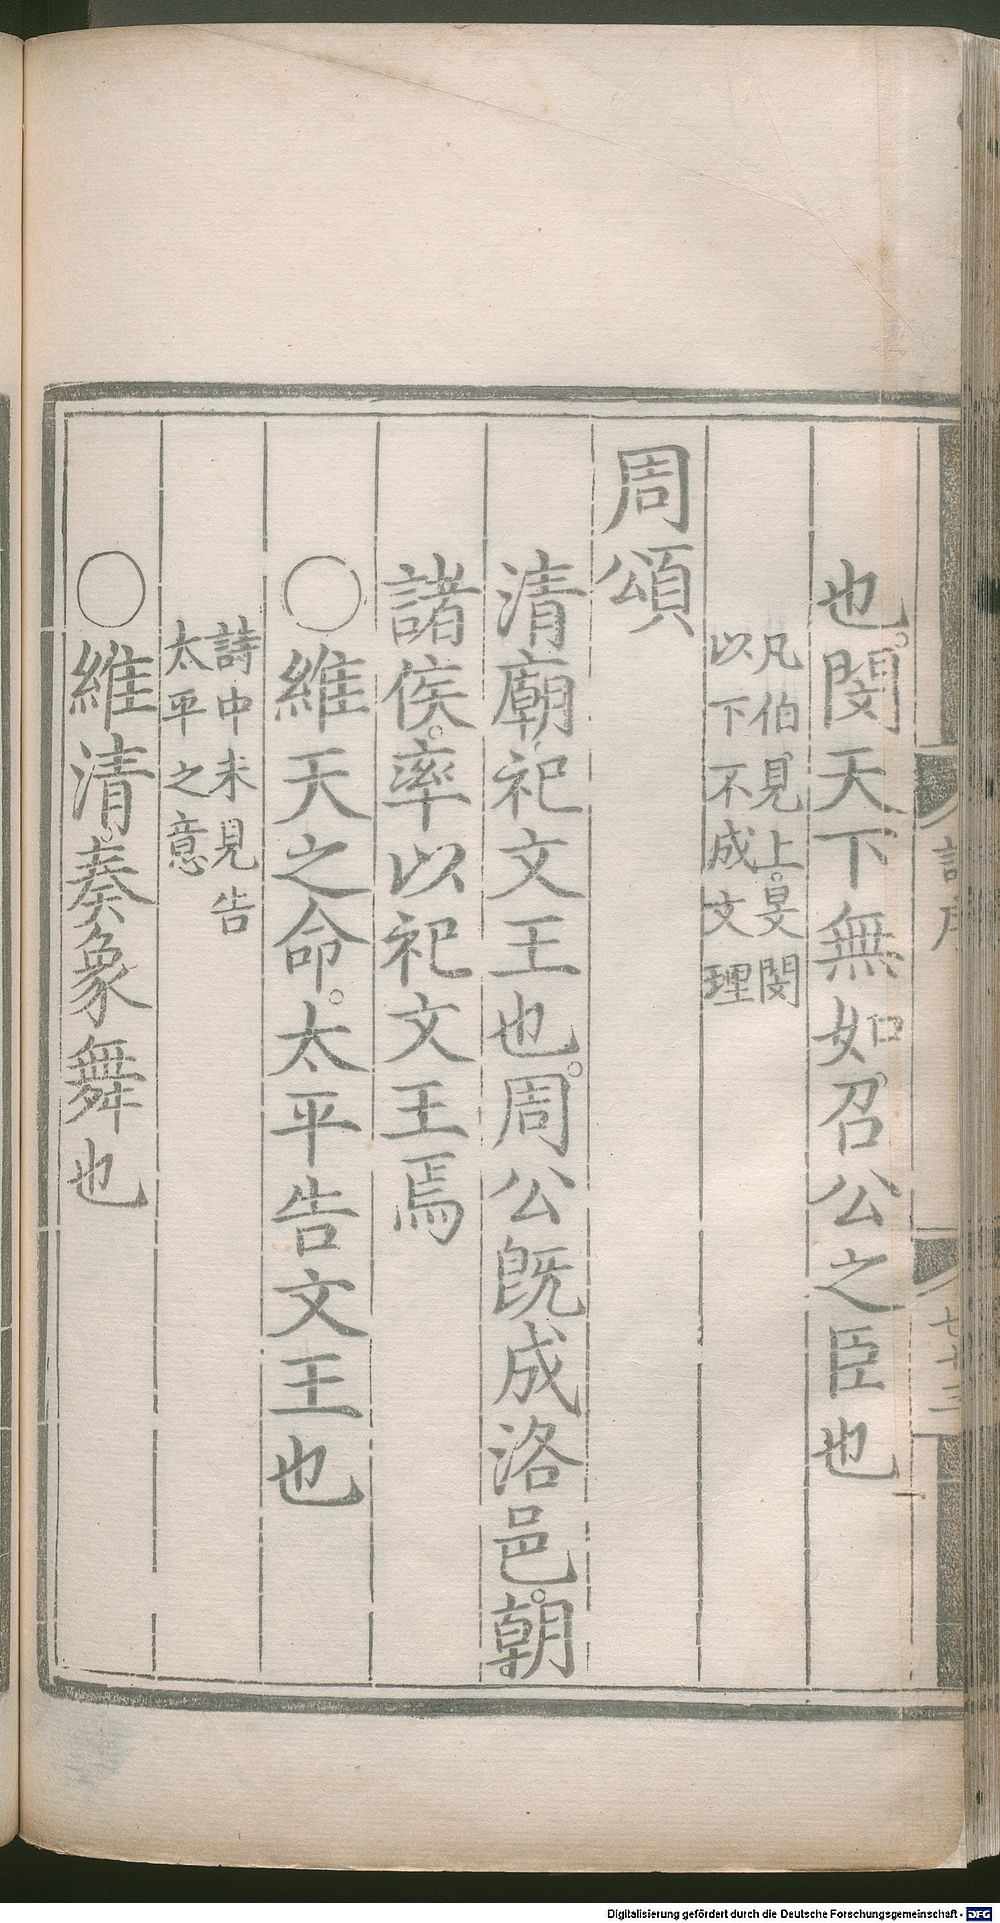 也。閔天下無如召公之臣也
凡伯見上。旻閔
以下不成文理
周頌
清廟祀文王也。周公旣成洛邑。朝
諸侯。率以祀文王焉
○維天之命。太平告文王也
詩中未見告
太平之意
○維清。奏象舞也
七十三
Digitalisierung gefördert durch die Deutsche Forschungsgemeinschaft - DFG